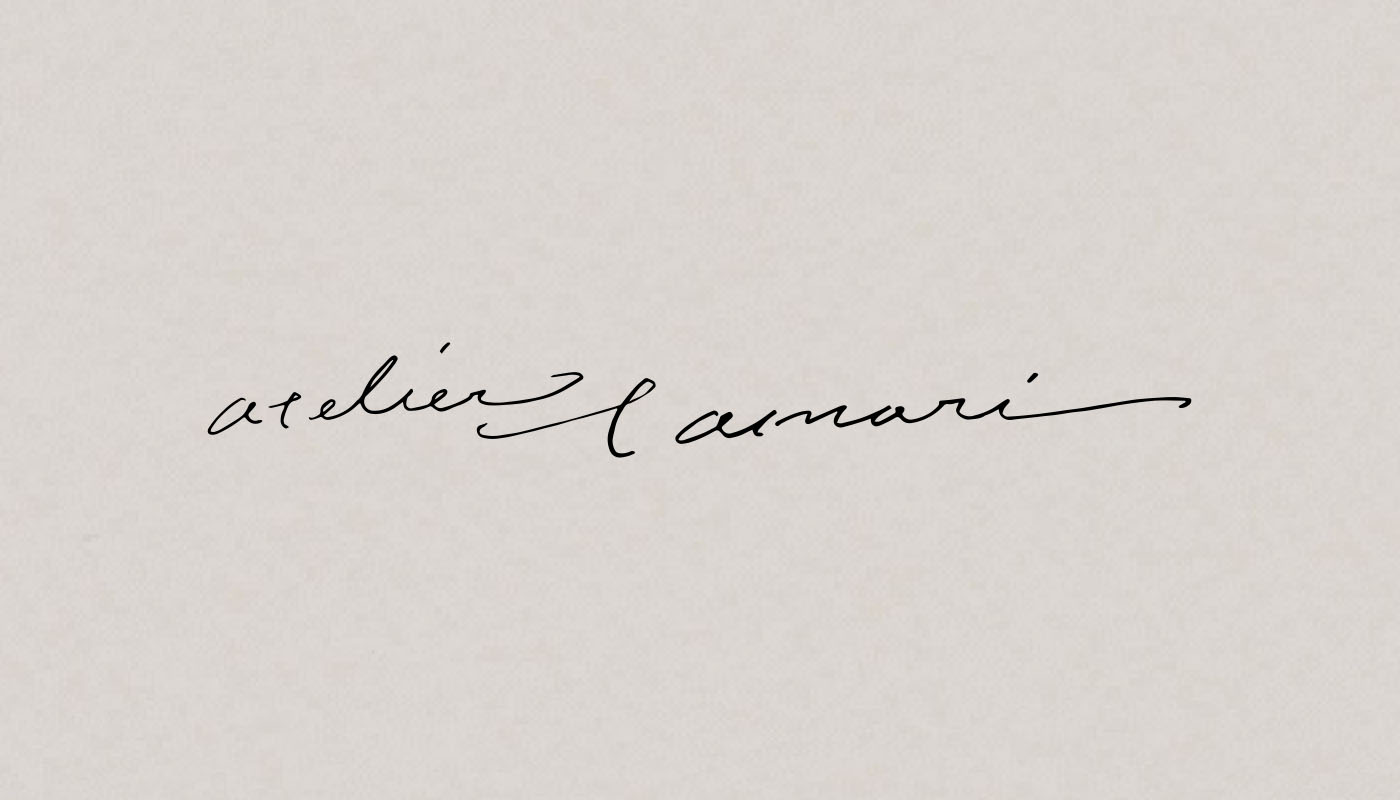 atelier Lamari